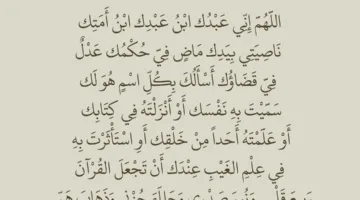 اللَّهُمَّ إِنِّي عَبْدُكَ ابْنُ عَبْدِكَ ابْنُ أَمَتِكَ
نَاصِيَتِي بِيَدِكَ مَاضٍ فِيَّ حُكْمُكَ عَدْلٌ
فِيَّ قَضَاؤُكَ أَسْأَلُكَ بِكُلِّ اسْمٍ هُوَ لَكَ
سَمَّيْتَ بِهِ نَفْسَكَ أَوْ أَنْزَلْتَهُ فِي كِتَابِكَ
أَوْ عَلَّمْتَهُ أَحَداً مِنْ خَلْقِكَ أَوِ اسْتَأْثَرْتَ بِهِ
فِي عِلْمِ الْغَيْبِ عِنْدَكَ أَنْ تَجْعَلَ القُرْآنَ
رَبِيعَ قَلْبِي وَنُورَ صَدْرِي وَجَلَاءَ حُزْنِي وَذَهَابَ